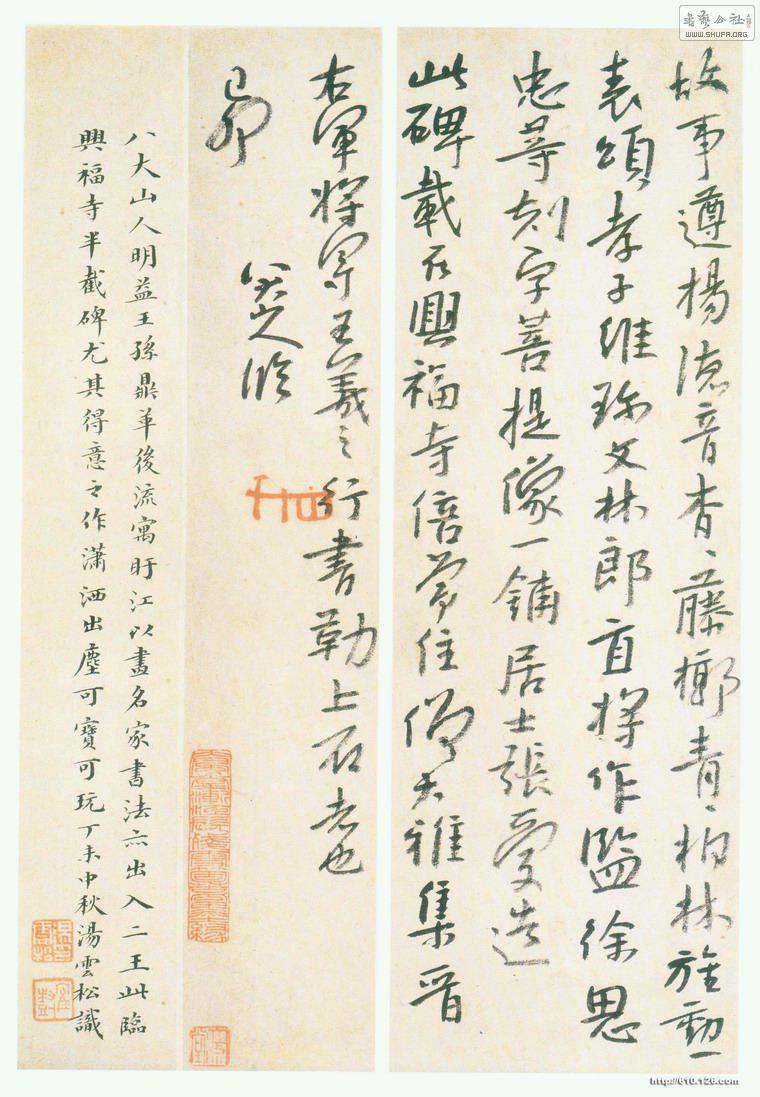 故事遵揚德音杳〻藤槨青〻柏林旌勳一
表頌孝子維文林郎直將作監徐思
忠等刻字菩提像一鋪居士張愛造
此碑載在興福寺倍常住僧大雅集晉
右軍將軍王羲之行書勒上石者也
己卯
八大山人臨
八大山人明益王孫鼎革後流寓盱江以畫名家書法亦出入二王此臨
興福寺半截碑尤其得意之作瀟洒出塵可寶可玩丁未中秋湯雲松識
书艺公社
www.SHUFA.ORG
http://610.126.com